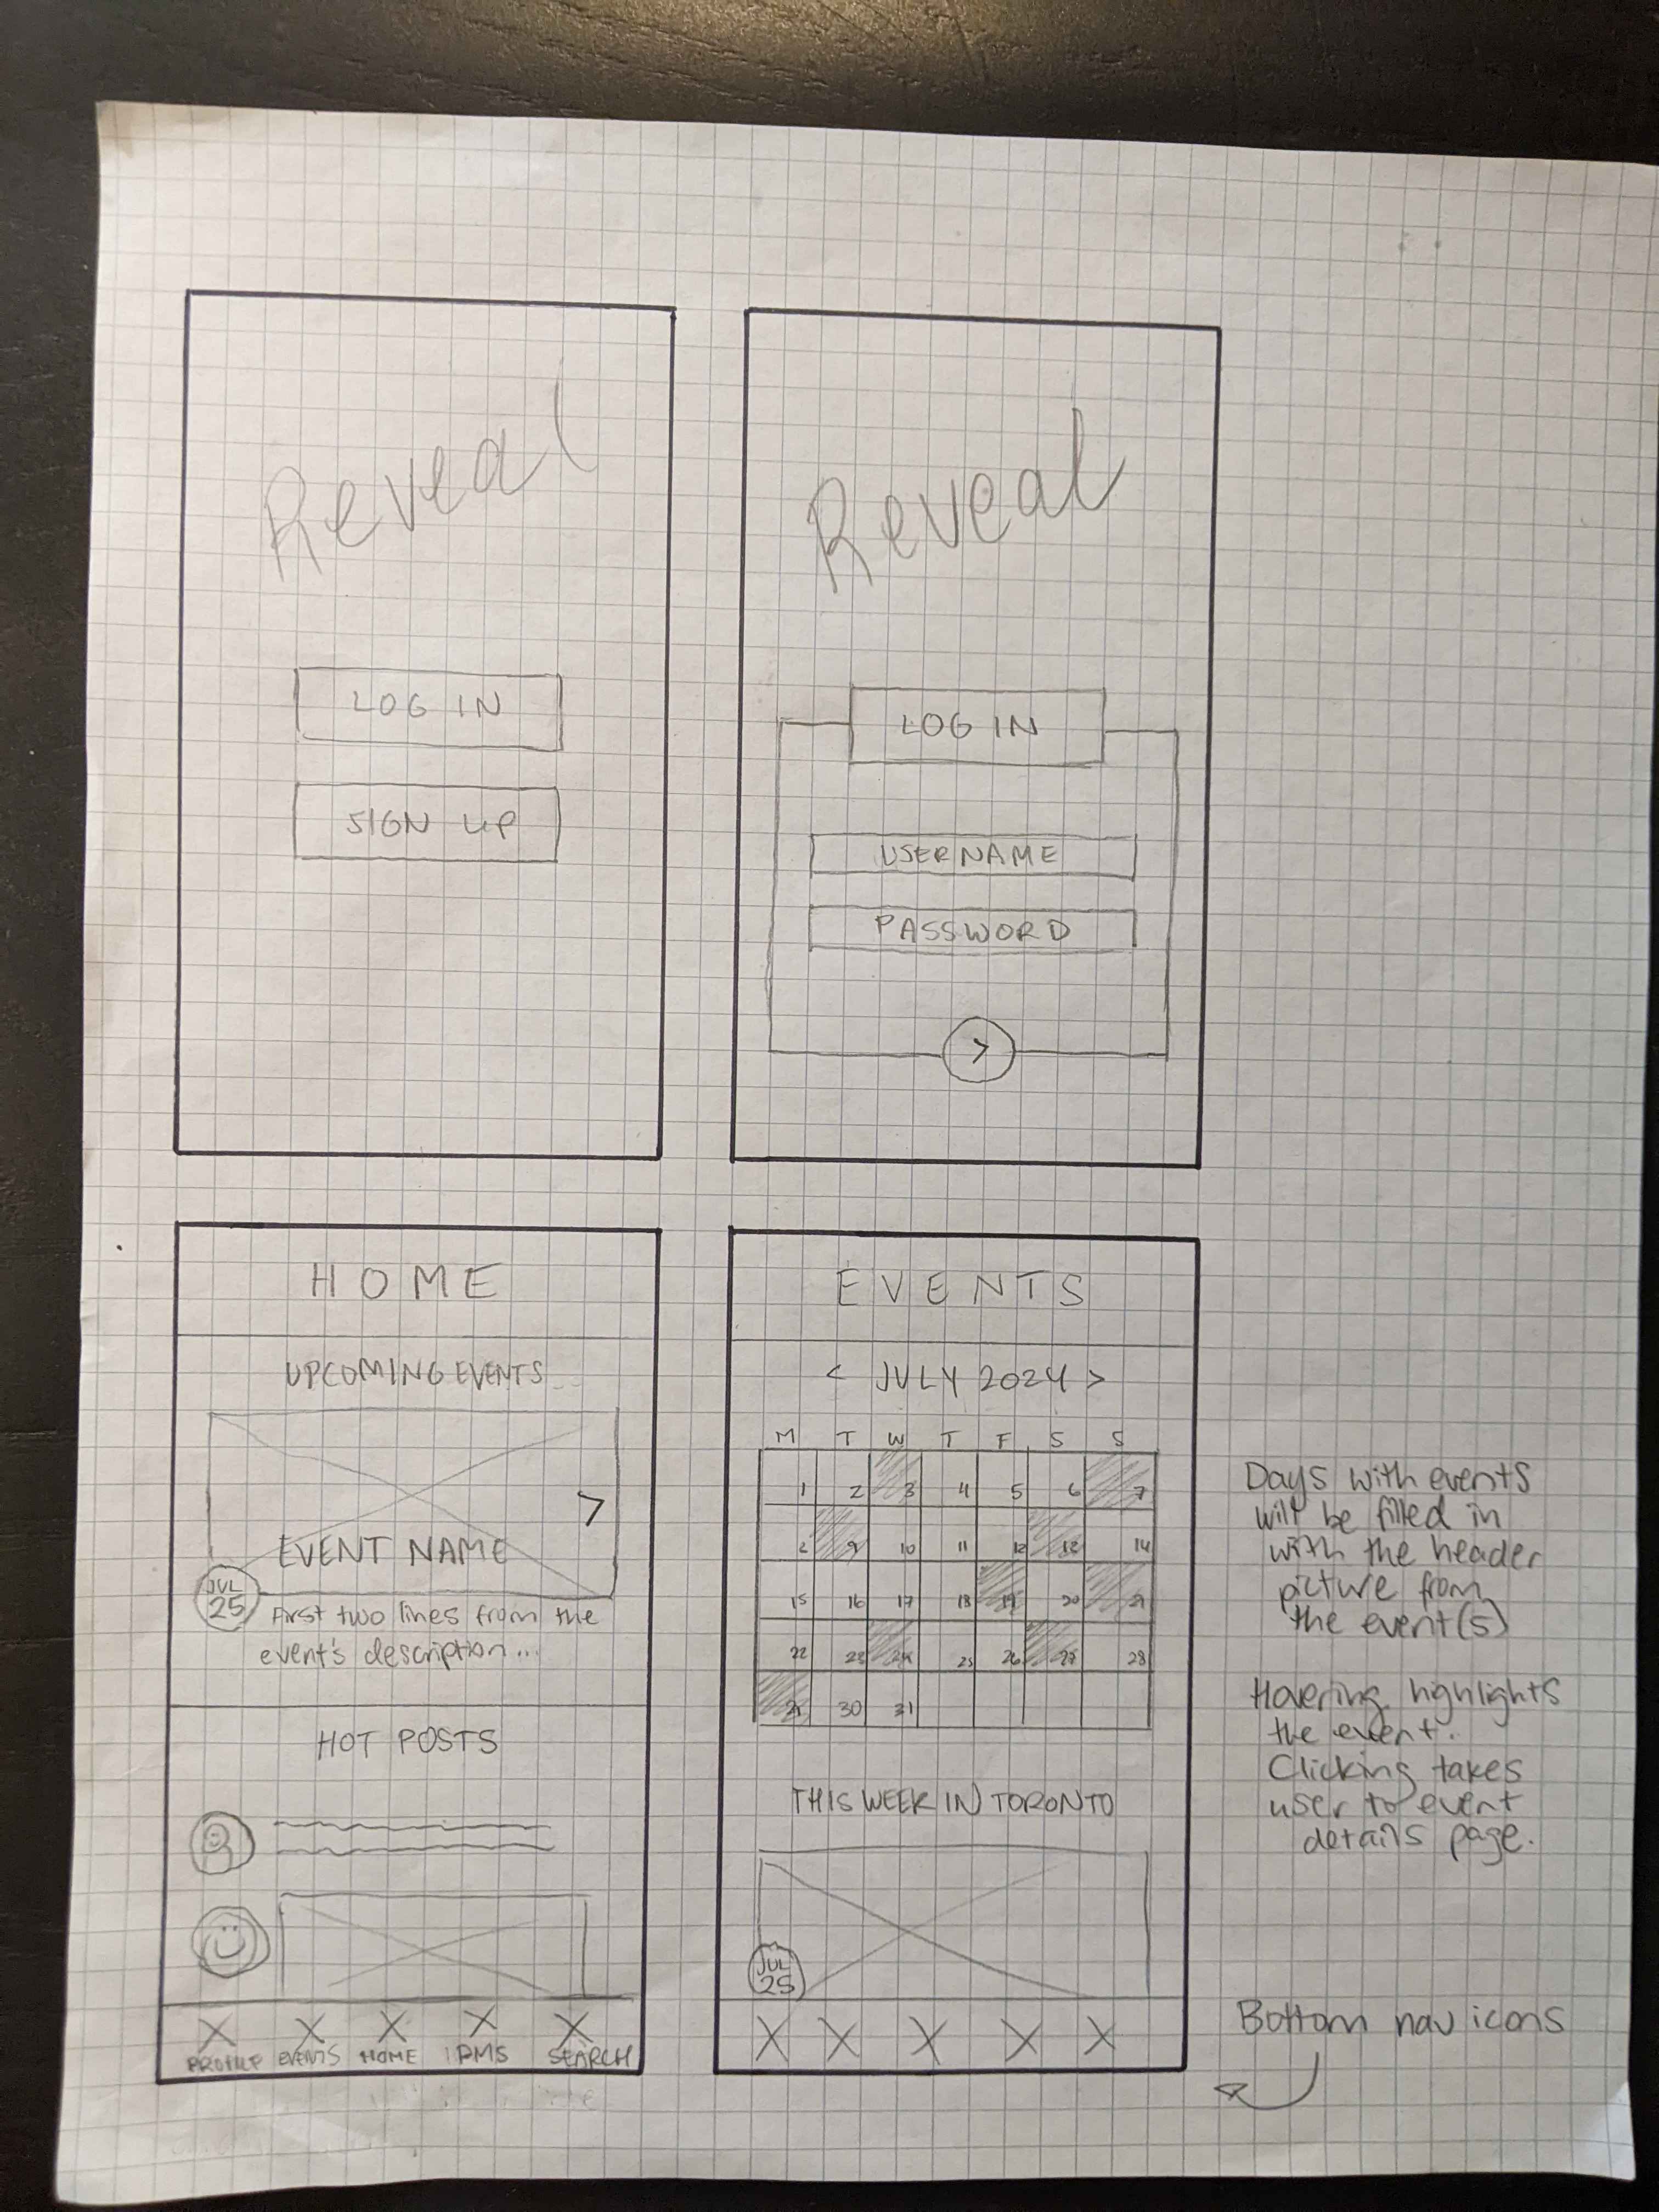 Reveal
LOG IN
SIGN UP
Reveal
LOG IN
USERNAME
PASSWORD
>
HOME
UPCOMING EVENTS
>
EVENT NAME
JUL
25
First two lines from the
event's description...
HOT POSTS
PROFILE EVENTS HOME DMS SEARCH
EVENTS
< JULY 2024 >
M T W T F S S
1 2 3 4 5 6 7
9 10 11 12 13 14
15 16 17 18 19 20 21
22 23 24 25 26 27 28
30 31
THIS WEEK IN TORONTO
JUL
25
Days with events
will be filled in
with the header
picture from
the event(s)
Hovering highlights
the event.
Clicking takes
user to event
details page.
Bottom nav icons